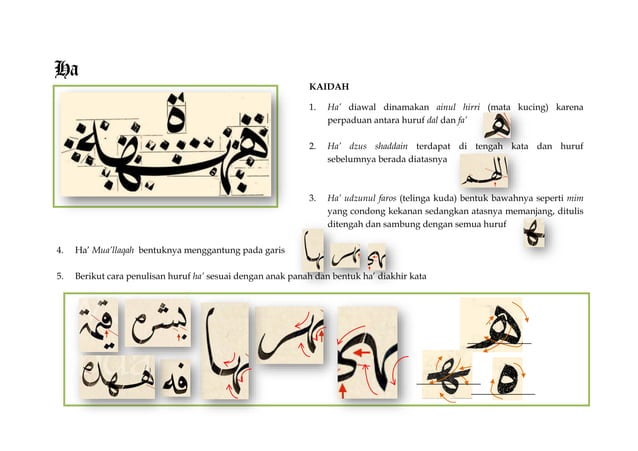 Ha
ة
KAIDAH
1. Ha' diawal dinamakan ainul hirri (mata kucing) karena
perpaduan antara huruf dal dan fa'
هـ
2. Ha' dzus shaddain terdapat di tengah kata dan huruf
sebelumnya berada diatasnya
الهم
3. Ha' udzunul faros (telinga kuda) bentuk bawahnya seperti mim
yang condong kekanan sedangkan atasnya memanjang, ditulis
ditengah dan sambung dengan semua huruf
ـهـ
4. Ha' Mua'llaqah bentuknya menggantung pada garis
5. Berikut cara penulisan huruf ha' sesuai dengan anak panah dan bentuk ha' diakhir kata
فه
هـ
ـهـ ه